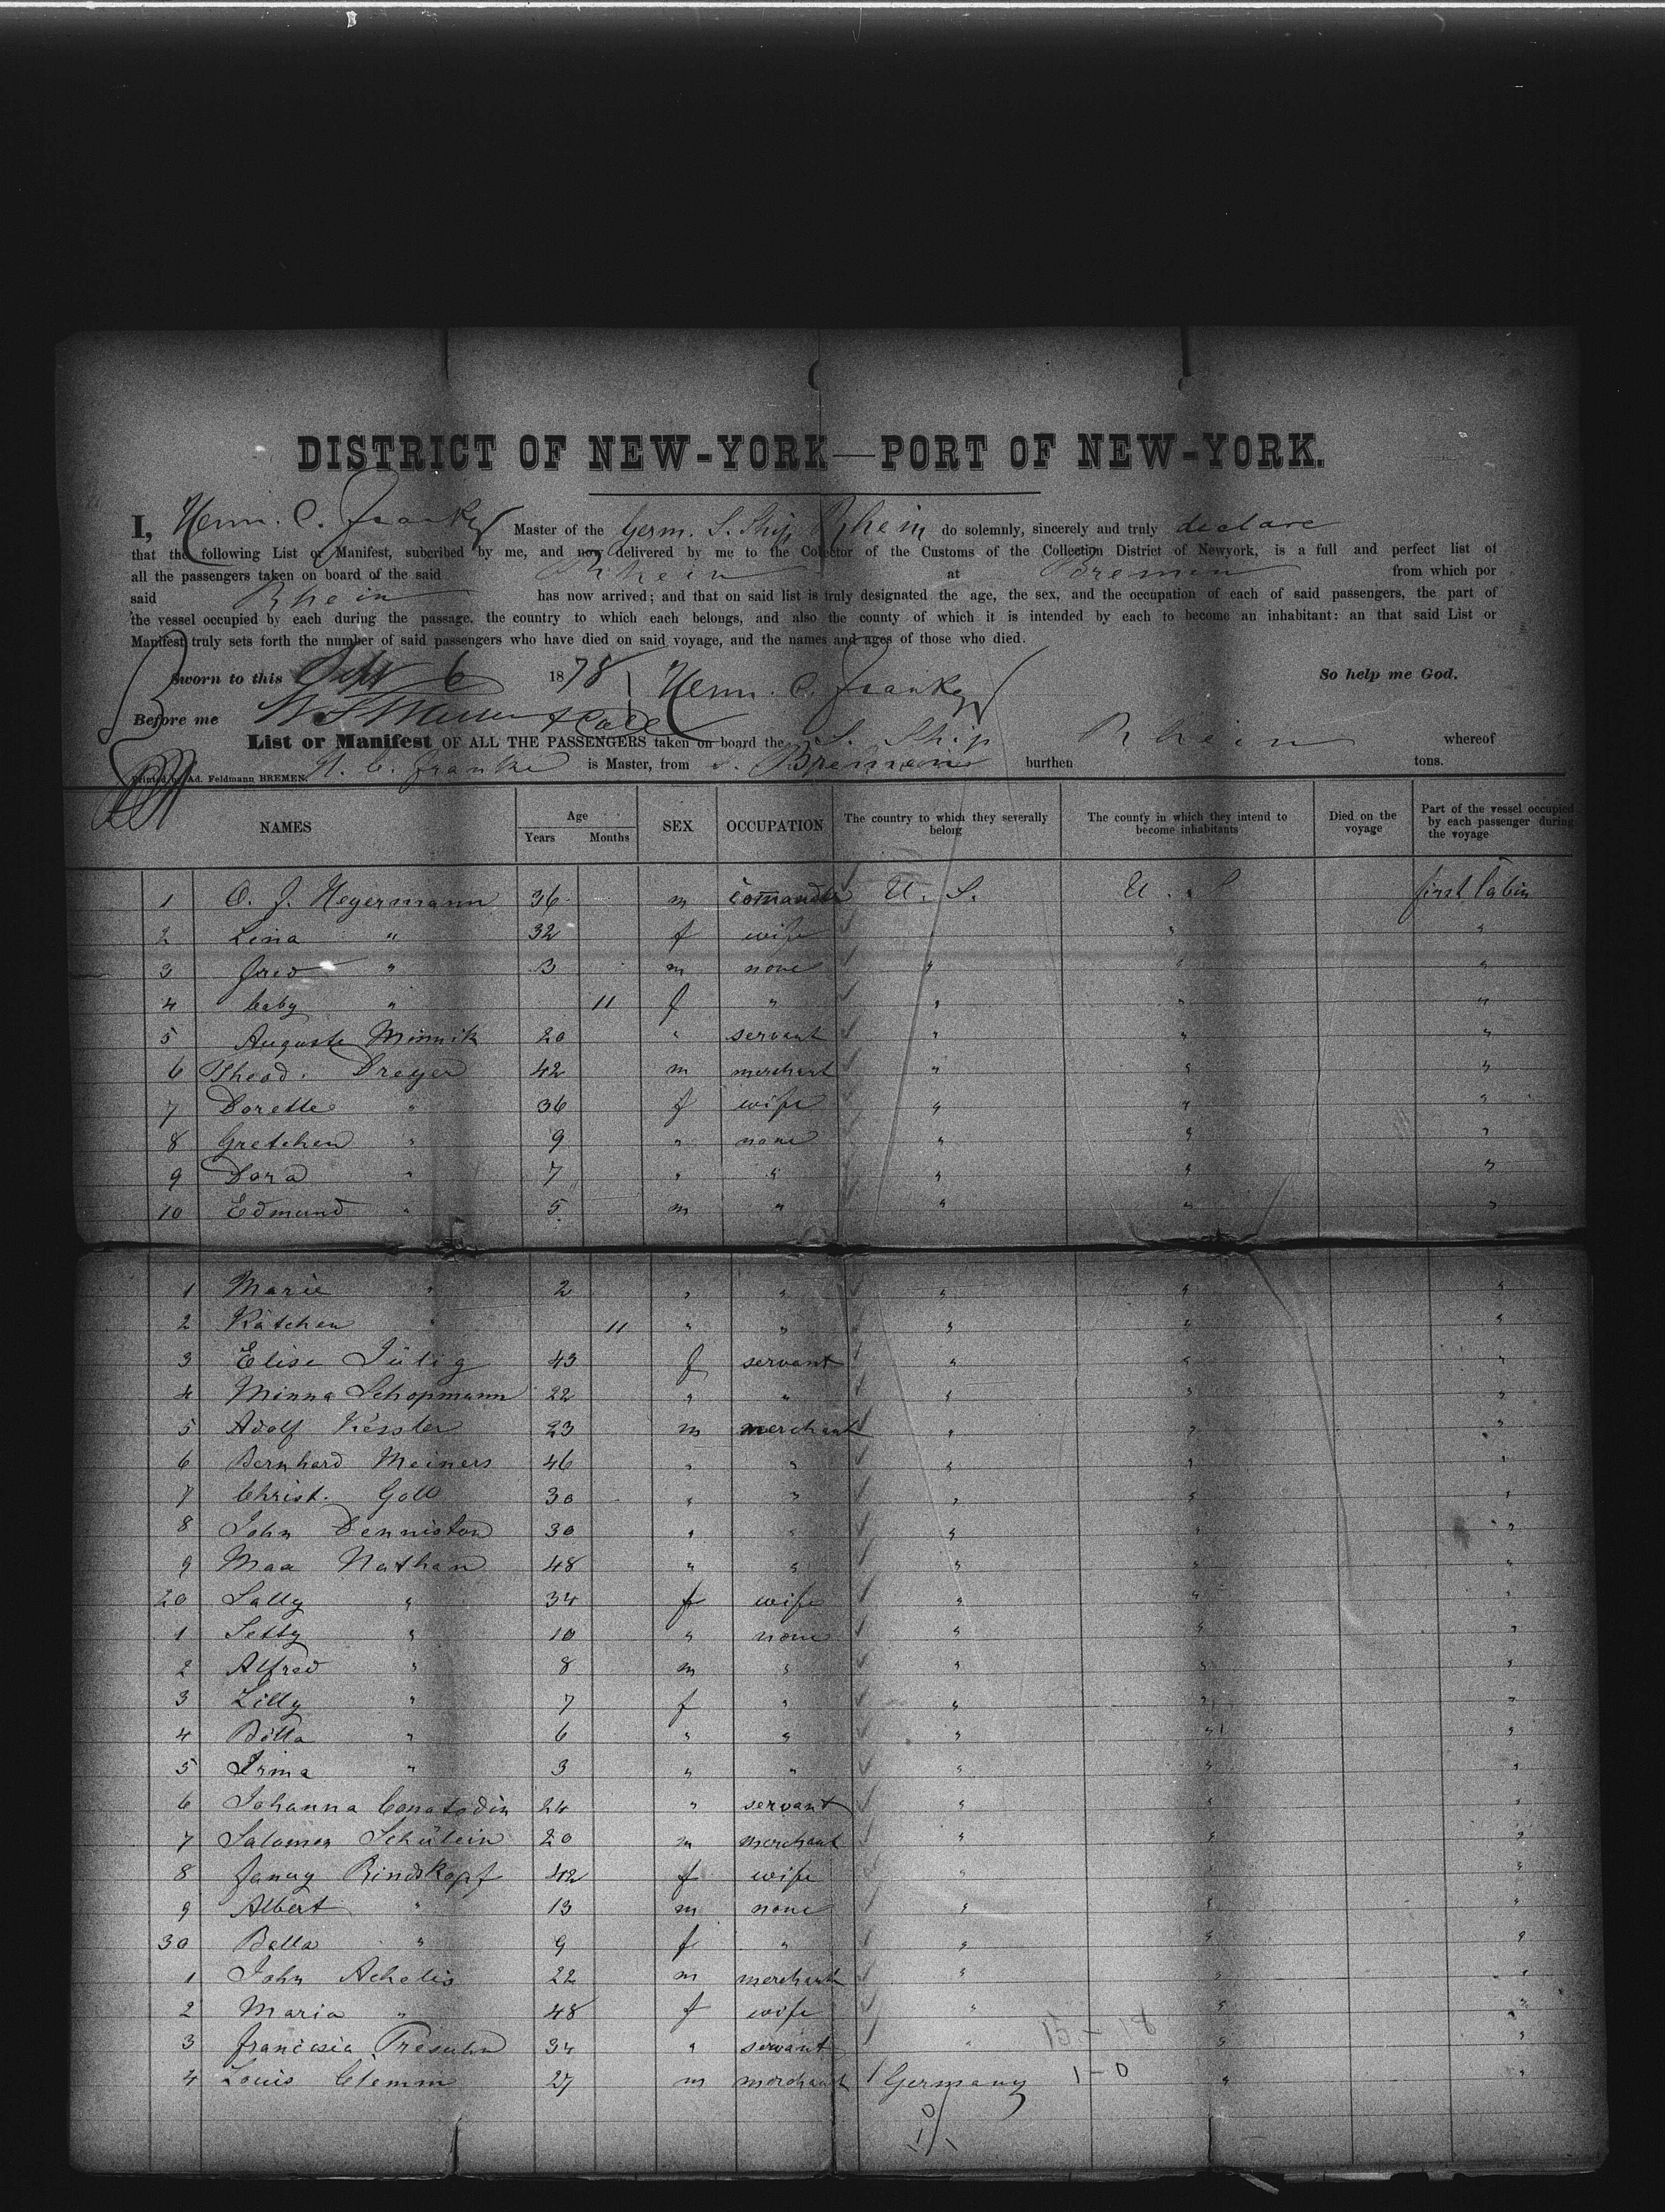 DISTRICT OF NEW-YORK—PORT OF NEW-YORK.
I, Herm. C. Franke Master of the Germ. S. Ship Rhein do solemnly, sincerely and truly declare
that the following List or Manifest, subcribed by me, and now delivered by me to the Collector of the Customs of the Collection District of Newyork, is a full and perfect list of
all the passengers taken on board of the said Rhein at Bremen from which por
said Rhein has now arrived; and that on said list is truly designated the age, the sex, and the occupation of each of said passengers, the part of
the vessel occupied by each during the passage, the country to which each belongs, and also the county of which it is intended by each to become an inhabitant: an that said List or
Manifest truly sets forth the number of said passengers who have died on said voyage, and the names and ages of those who died.
Sworn to this Sept 6 1878 Herm. C. Franke So help me God.
Before me
List or Manifest OF ALL THE PASSENGERS taken on board the S. Ship Rhein whereof
Printed by Ad. Feldmann BREMEN. H. C. Franke is Master, from Bremen burthen tons.
NAMES Age Years Months SEX OCCUPATION The country to which they severally belong The county in which they intend to become inhabitants Died on the voyage Part of the vessel occupied by each passenger during the voyage
1 O. J. Heyermann 36 m comander U. S. U. S. first Cabin
2 Lina " 32 f wife " "
3 Fred " 3 m none " " "
4 baby " 11 f " " " "
5 Auguste Minnik 20 " servant " " "
6 Theod. Dreyer 42 m merchant " " "
7 Dorette " 36 f wife " " "
8 Gretchen " 9 " none " " "
9 Dora " 7 " " " " "
10 Edmund " 5 m " " " "
1 Marie " 2 " " " " "
2 Kätchen " 11 " " " " "
3 Elise Jülig 43 f servant " " "
4 Minna Schopmann 22 " " " " "
5 Adolf Kessler 23 m merchant " " "
6 Bernhard Meiners 46 " " " " "
7 Christ. Goll 30 " " " " "
8 John Denniston 30 " " " " "
9 Max Nathan 48 " " " " "
20 Sally " 34 f wife " " "
1 Setty " 10 " none " " "
2 Alfred " 8 m " " " "
3 Lilly " 7 f " " " "
4 Billa " 6 " " " " "
5 Irma " 3 " " " " "
6 Johanna 24 " servant " " "
7 Salomon Schülein 20 m merchant " " "
8 Fanny Rindskopf 42 f wife " " "
9 Albert " 13 m none " " "
30 Bella " 9 f " " " "
1 John Achelis 22 m merchant " " "
2 Maria " 48 f wife " " "
3 Francisia 34 " servant " 15-18 " "
4 Louis Clemm 27 m merchant Germany 1-0 " "